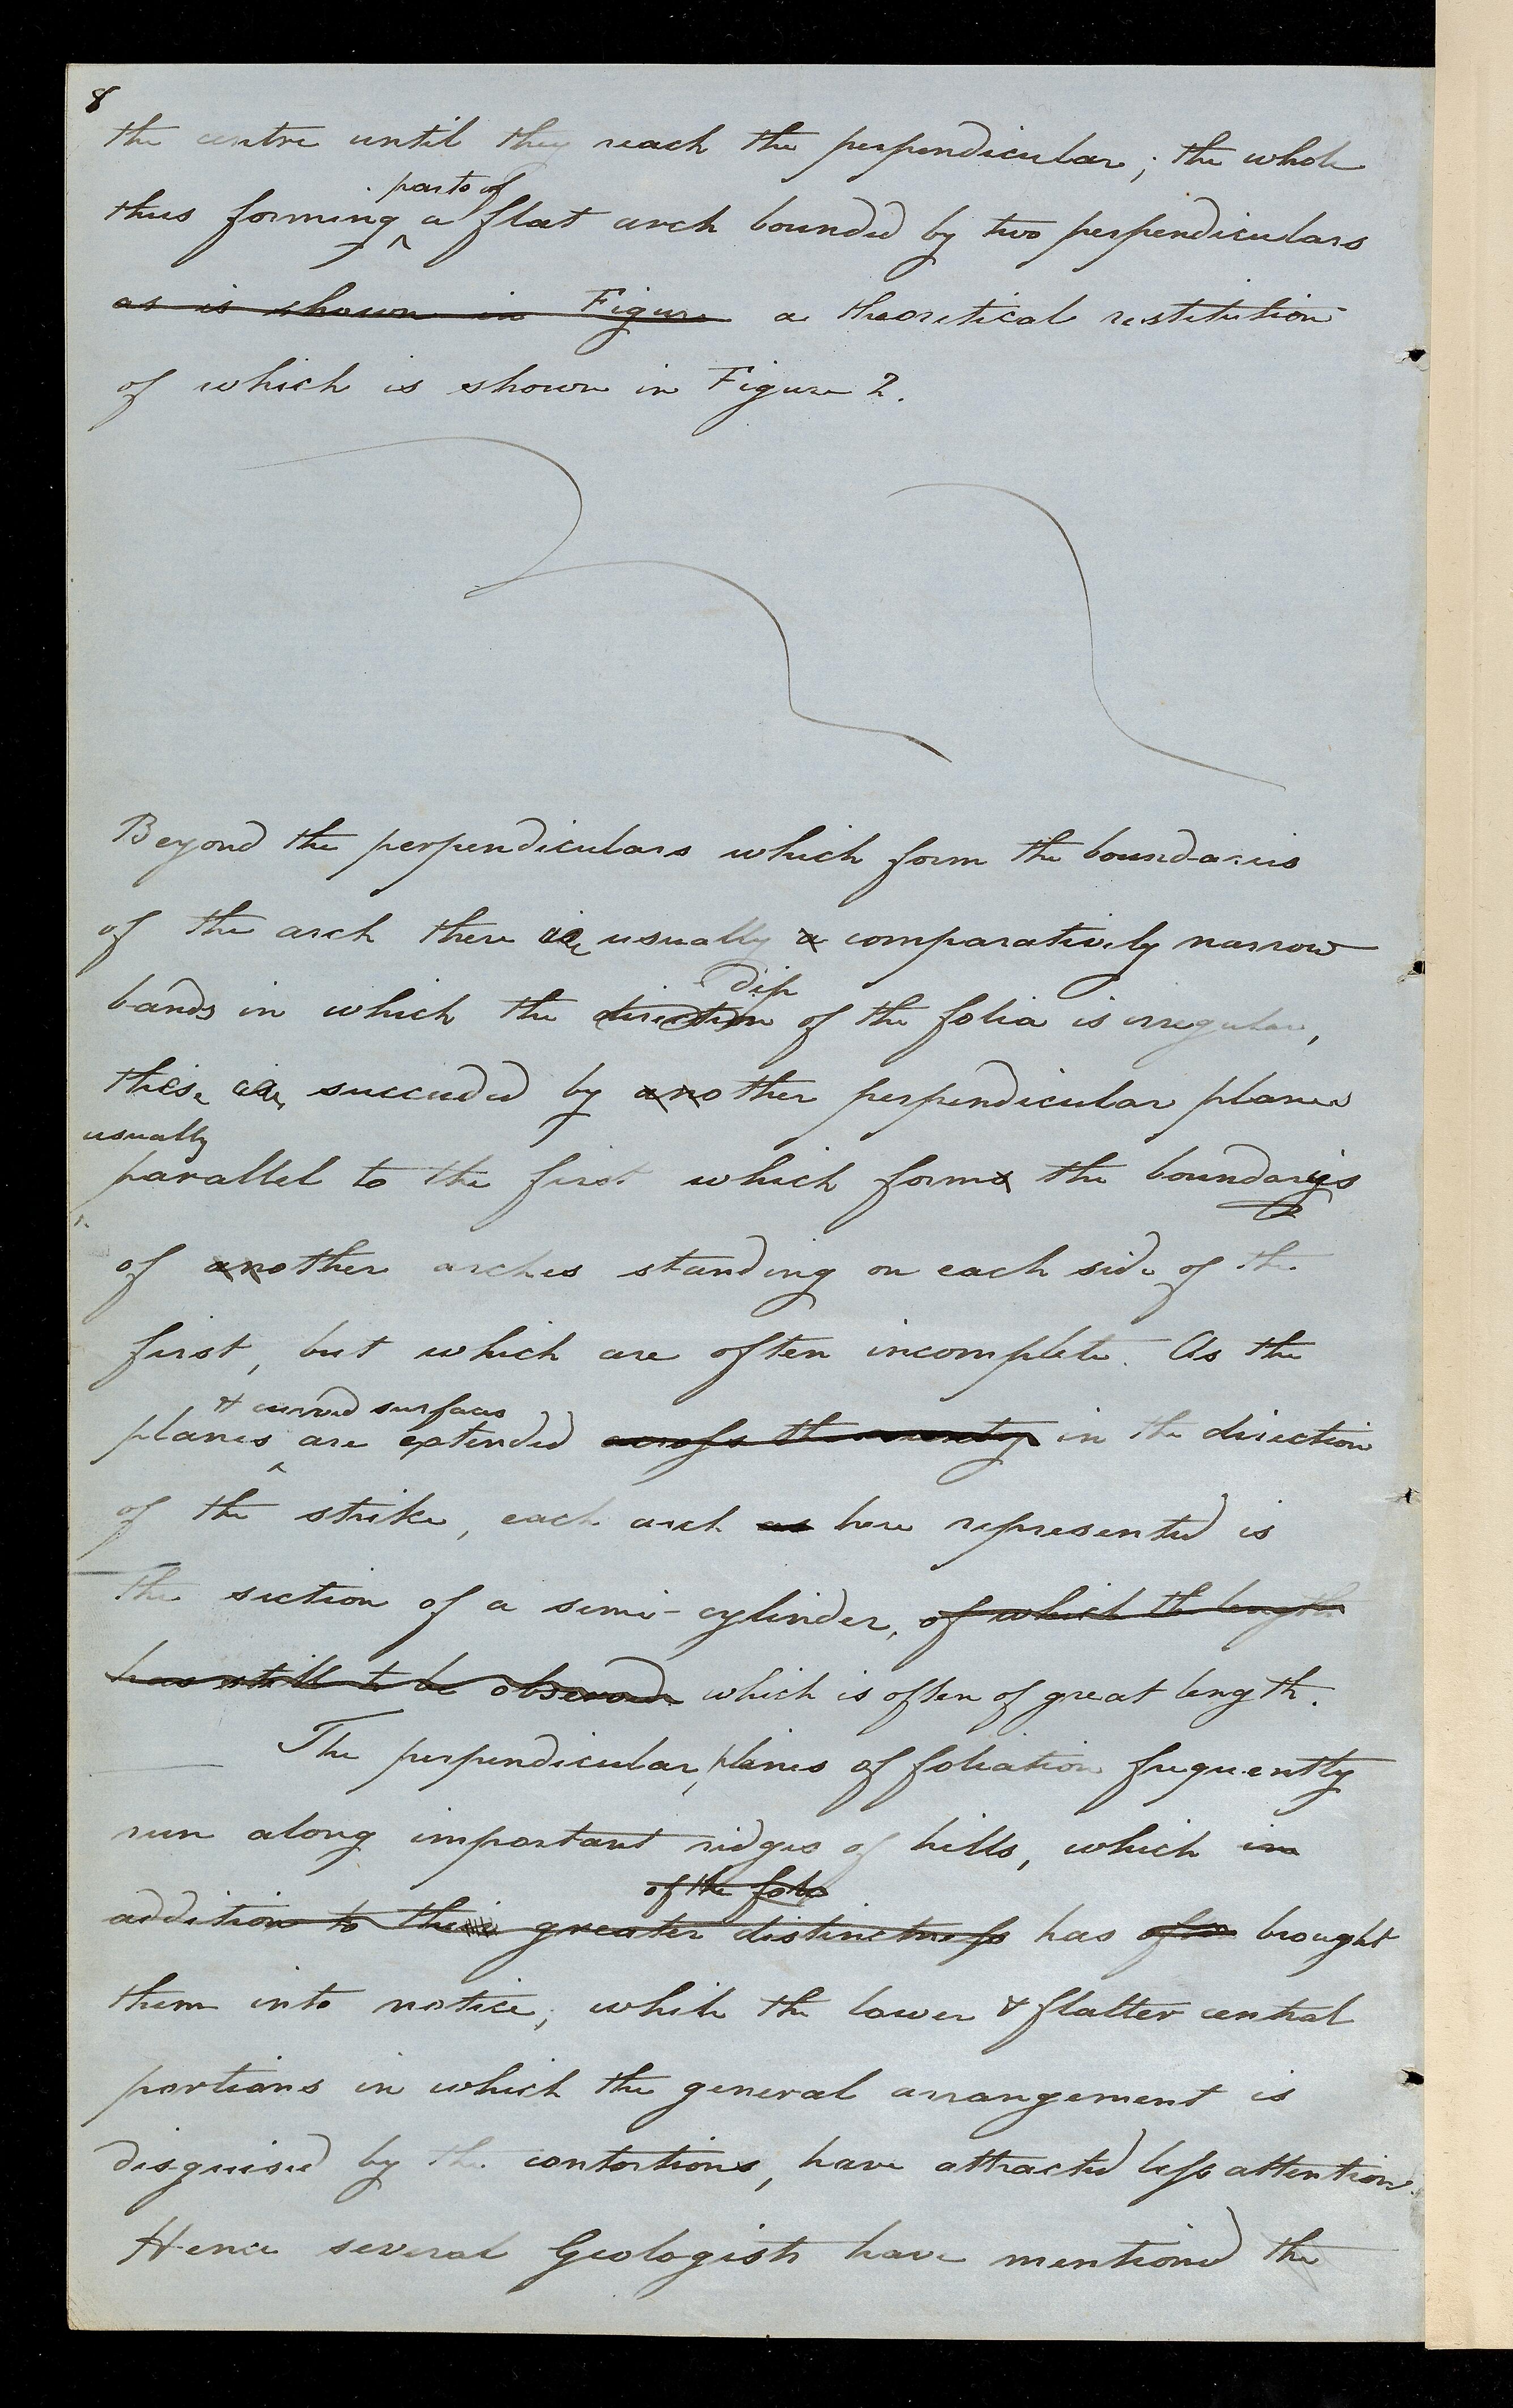 8
the centre until they reach the perpendicular; the whole
parts of
thus forming a flat arch bounded by two perpendiculars
as is shown in Figure a theoretical restitution
of which is shown in Figure 2.
Beyond the perpendiculars which form the boundaries
of the arch there are usually a comparatively narrow
dip
bands in which the direction of the folia is irregular,
these are succeeded by another perpendicular planes
usually
parallel to the first which forms the boundaries
of another arches standing on each side of the
first, but which are often incomplete. As the
& curved surfaces
planes are extended across the country in the direction
of the strike, each arch as here represented is
the section of a semi-cylinder, of which the length
has still to be observed which is often of great length.
The perpendicular planes of foliation frequently
run along important ridges of hills, which in
of the folia
addition to their greater distinctness has often brought
them into notice; while the lower & flatter central
portions in which the general arrangement is
disguised by the contortions, have attracted less attention.
Hence several Geologists have mentioned the